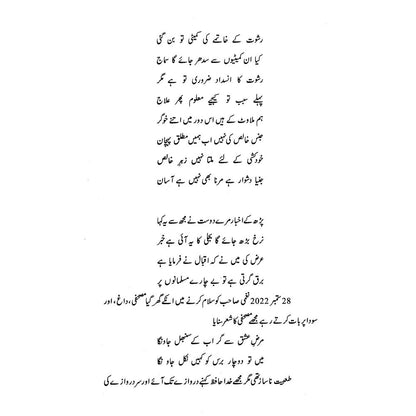 رشوت کے خاتمے کی کمیٹی تو بن گئی
کیا ان کمیٹیوں سے سدھر جائے گا سماج
رشوت کا انسداد ضروری تو ہے مگر
پہلے سبب تو کیجیے معلوم پھر علاج
ہم ملاوٹ کے ہیں اس دور میں اتنے خوگر
جنس خالص کی نہیں اب ہمیں مطلق پہچان
خودکشی کے لئے ملتا نہیں زہرِ خالص
جینا دشوار ہے مرنا بھی نہیں ہے آسان
پڑھ کے اخبار مرے دوست نے مجھ سے یہ کہا
نرخ بڑھ جائے گا بجلی کا یہ آئی ہے خبر
عرض کی میں نے کہ اقبال نے فرمایا ہے
برق گرتی ہے تو بے چارے مسلمانوں پر
28 ستمبر 2022 نغمی صاحب کو سلام کرنے میں انکے گھر گیا مصحفی، داغ، اور
سودا پر بات کرتے رہے مجھے مصحفی کا شعر سنایا
مرضِ عشق سے گر اب کے سنبھل جاؤنگا
میں تو دو چار برس کو کہیں نکل جاؤنگا
طبعیت ناساز تھی مگر مجھے خدا حافظ کہنے دروازے تک آئے اور سر دروازے کی